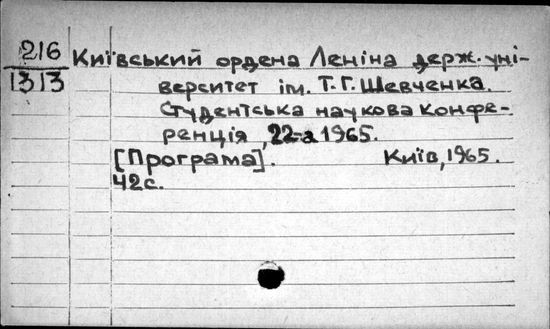 216
1313
Київський ордена Леніна держ. уні-
верситет ім. Т. Г. Шевченка.
Студентська наукова конфе-
ренція, 22-а 1965.
[Програма]. Київ, 1965.
42с.